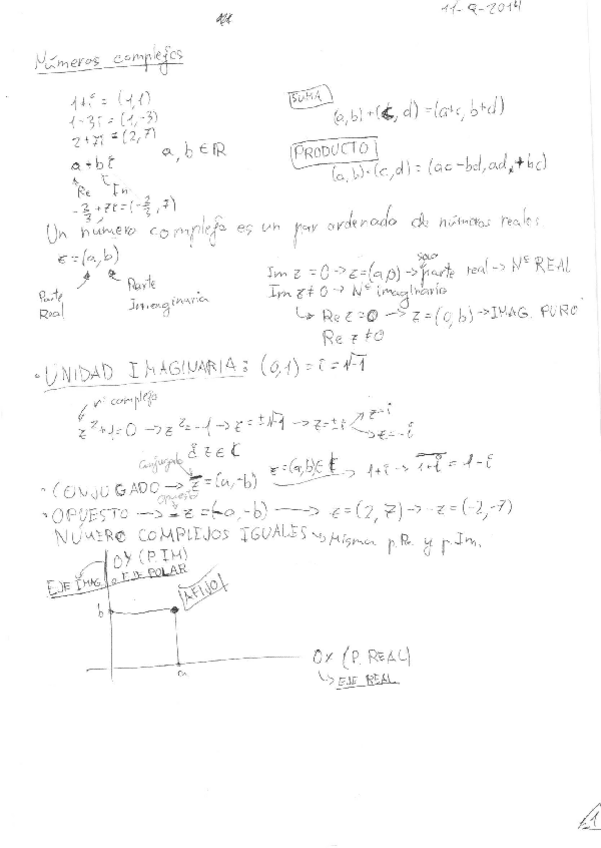 11-9-2014
Números complejos
1+i = (1,1)
1-3i = (1,-3)
2+7i = (2,7)
a+bi
a, b ∈ ℝ
Re Im
-2/3+7i=(-2/3, 7)
SUMA
(a,b)+(c,d)=(a+c, b+d)
PRODUCTO
(a,b)·(c,d)=(ac-bd, ad+bc)
Un número complejo es un par ordenado de números reales
z=(a,b)
Parte Real
Parte Imaginaria
Im z = 0 → z=(a,0) → solo parte real → Nº REAL
Im z ≠ 0 → Nº imaginario
↳ Re z=0 → z=(0,b) → IMAG. PURO
Re z ≠ 0
· UNIDAD IMAGINARIA: (0,1)=i=√-1
nº complejo
z²+1=0 → z²=-1 → z=±√-1 → z=±i
z=i
z=-i
z ∈ ℂ
conjugado
· CONJUGADO → z̄=(a,-b) z=(a,b)∈ℂ → 1+i → 1+i = 1-i
opuesto
· OPUESTO → -z=(-a,-b) → z=(2,7) → -z=(-2,-7)
NÚMERO COMPLEJOS IGUALES → Misma p.Re. y p.Im.
OY (P.IM)
EJE IMAG. o EJE POLAR
AFIJO
b
a
OX (P. REAL)
↳ EJE REAL
1